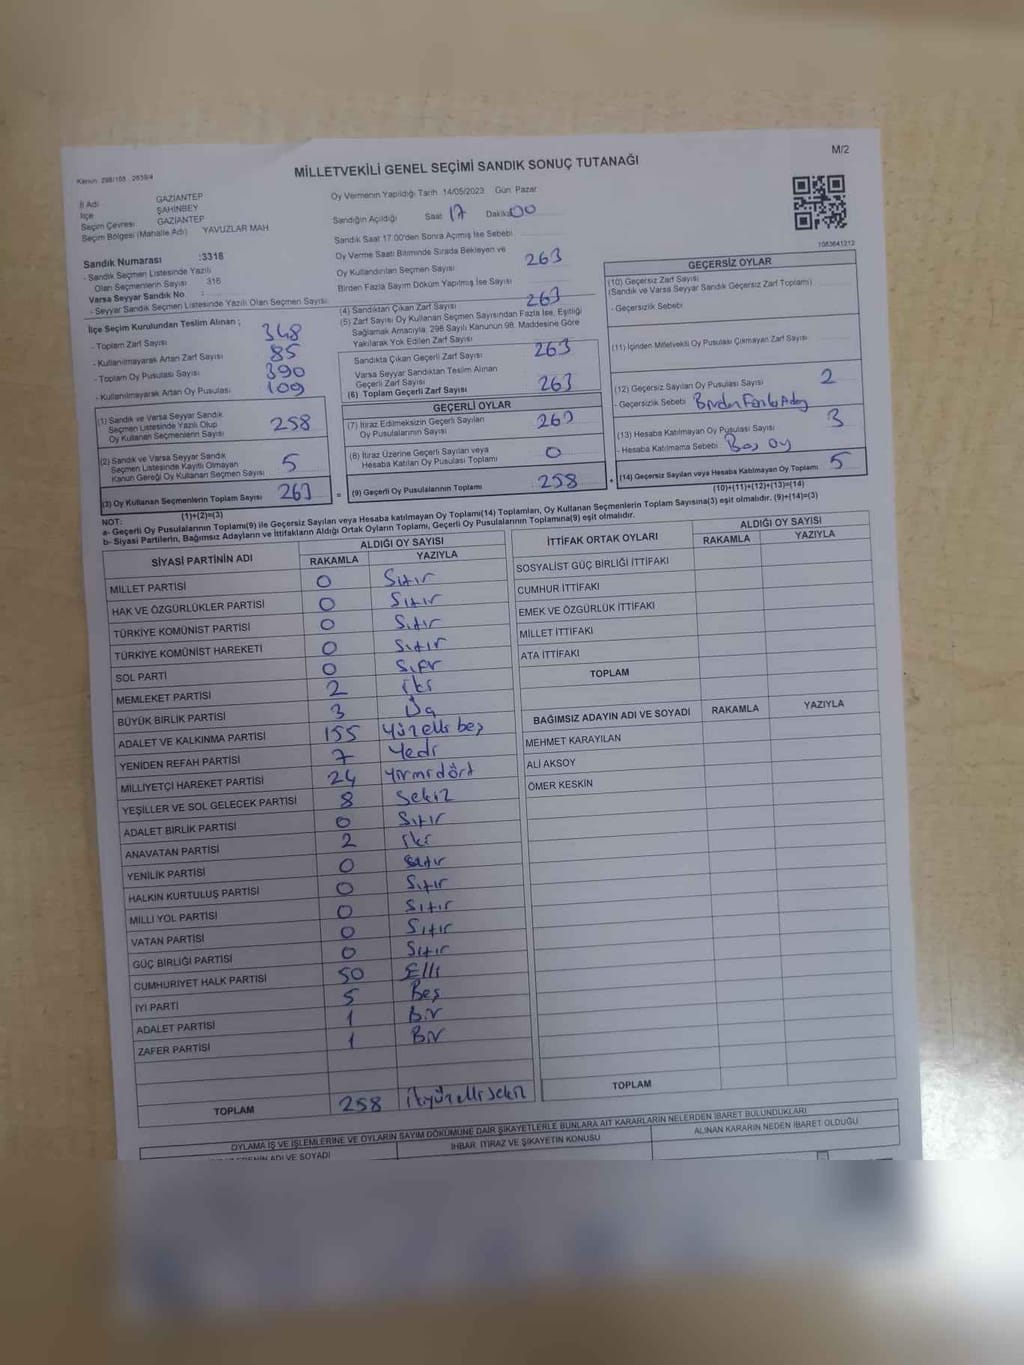 M/2
Kanun: 298/105 , 2839/4
MİLLETVEKİLİ GENEL SEÇİMİ SANDIK SONUÇ TUTANAĞI
İl Adı GAZİANTEP
İlçe ŞAHİNBEY
Seçim Çevresi GAZİANTEP
Seçim Bölgesi (Mahalle Adı) YAVUZLAR MAH
Oy Vermenin Yapıldığı Tarih 14/05/2023 Gün Pazar
Sandığın Açıldığı Saat 17 Dakika 00
Sandık Saat 17.00'den Sonra Açmış İse Sebebi
Oy Verme Saati Bitiminde Sırada Bekleyen ve
Oy Kullandırılan Seçmen Sayısı 263
Birden Fazla Sayım Döküm Yapılmış İse Sayısı
1083641212
Sandık Numarası :3318
- Sandık Seçmen Listesinde Yazılı
Olan Seçmenlerin Sayısı 316
Varsa Seyyar Sandık No :
- Seyyar Sandık Seçmen Listesinde Yazılı Olan Seçmen Sayısı:
İlçe Seçim Kurulundan Teslim Alınan ;
- Toplam Zarf Sayısı 348
- Kullanılmayarak Artan Zarf Sayısı 85
- Toplam Oy Pusulası Sayısı 390
- Kullanılmayarak Artan Oy Pusulası 109
(1) Sandık ve Varsa Seyyar Sandık
Seçmen Listesinde Yazılı Olup
Oy Kullanan Seçmenlerin Sayısı 258
(2) Sandık ve Varsa Seyyar Sandık
Seçmen Listesinde Kayıtlı Olmayan
Kanun Gereği Oy Kullanan Seçmen Sayısı 5
(3) Oy Kullanan Seçmenlerin Toplam Sayısı 263
(1)+(2)=(3)
(4) Sandıktan Çıkan Zarf Sayısı 263
(5) Zarf Sayısı Oy Kullanan Seçmen Sayısından Fazla İse, Eşitliği
Sağlamak Amacıyla, 298 Sayılı Kanunun 98. Maddesine Göre
Yakılarak Yok Edilen Zarf Sayısı
Sandıkta Çıkan Geçerli Zarf Sayısı 263
Varsa Seyyar Sandıktan Teslim Alınan
Geçerli Zarf Sayısı
(6) Toplam Geçerli Zarf Sayısı 263
GEÇERLİ OYLAR
(7) İtiraz Edilmeksizin Geçerli Sayılan
Oy Pusulalarının Sayısı 263
(8) İtiraz Üzerine Geçerli Sayılan veya
Hesaba Katılan Oy Pusulası Toplamı 0
= (9) Geçerli Oy Pusulalarının Toplamı 258 +
GEÇERSİZ OYLAR
(10) Geçersiz Zarf Sayısı
(Sandık ve Varsa Seyyar Sandık Geçersiz Zarf Toplamı)
- Geçersizlik Sebebi
(11) İçinden Milletvekili Oy Pusulası Çıkmayan Zarf Sayısı
(12) Geçersiz Sayılan Oy Pusulası Sayısı 2
- Geçersizlik Sebebi Birden Fazla Aday
(13) Hesaba Katılmayan Oy Pusulası Sayısı 3
- Hesaba Katılmama Sebebi Boş Oy
(14) Geçersiz Sayılan veya Hesaba Katılmayan Oy Toplamı 5
(10)+(11)+(12)+(13)=(14)
NOT:
a- Geçerli Oy Pusulalarının Toplamı(9) ile Geçersiz Sayılan veya Hesaba katılmayan Oy Toplamı(14) Toplamları, Oy Kullanan Seçmenlerin Toplam Sayısına(3) eşit olmalıdır. (9)+(14)=(3)
b- Siyasi Partilerin, Bağımsız Adayların ve İttifakların Aldığı Ortak Oyların Toplamı, Geçerli Oy Pusulalarının Toplamına(9) eşit olmalıdır.
SİYASİ PARTİNİN ADI ALDIĞI OY SAYISI
RAKAMLA YAZIYLA
MİLLET PARTİSİ 0 Sıfır
HAK VE ÖZGÜRLÜKLER PARTİSİ 0 Sıfır
TÜRKİYE KOMÜNİST PARTİSİ 0 Sıfır
TÜRKİYE KOMÜNİST HAREKETİ 0 Sıfır
SOL PARTİ 0 Sıfır
MEMLEKET PARTİSİ 2 İki
BÜYÜK BİRLİK PARTİSİ 3 Üç
ADALET VE KALKINMA PARTİSİ 155 Yüzelli beş
YENİDEN REFAH PARTİSİ 7 Yedi
MİLLİYETÇİ HAREKET PARTİSİ 24 Yirmidört
YEŞİLLER VE SOL GELECEK PARTİSİ 8 Sekiz
ADALET BİRLİK PARTİSİ 0 Sıfır
ANAVATAN PARTİSİ 2 iki
YENİLİK PARTİSİ 0 Sıfır
HALKIN KURTULUŞ PARTİSİ 0 Sıfır
MİLLİ YOL PARTİSİ 0 Sıfır
VATAN PARTİSİ 0 Sıfır
GÜÇ BİRLİĞİ PARTİSİ 0 Sıfır
CUMHURİYET HALK PARTİSİ 50 Elli
İYİ PARTİ 5 Beş
ADALET PARTİSİ 1 Bir
ZAFER PARTİSİ 1 Bir
TOPLAM 258 İkiyüzellisekiz
İTTİFAK ORTAK OYLARI ALDIĞI OY SAYISI
RAKAMLA YAZIYLA
SOSYALİST GÜÇ BİRLİĞİ İTTİFAKI
CUMHUR İTTİFAKI
EMEK VE ÖZGÜRLÜK İTTİFAKI
MİLLET İTTİFAKI
ATA İTTİFAKI
TOPLAM
BAĞIMSIZ ADAYIN ADI VE SOYADI RAKAMLA YAZIYLA
MEHMET KARAYILAN
ALİ AKSOY
ÖMER KESKİN
TOPLAM
OYLAMA İŞ VE İŞLEMLERİNE VE OYLARIN SAYIM DÖKÜMÜNE DAİR ŞİKAYETLERLE BUNLARA AİT KARARLARIN NELERDEN İBARET BULUNDUKLARI
ADI VE SOYADI İHBAR, İTİRAZ VE ŞİKAYETİN KONUSU ALINAN KARARIN NEDEN İBARET OLDUĞU